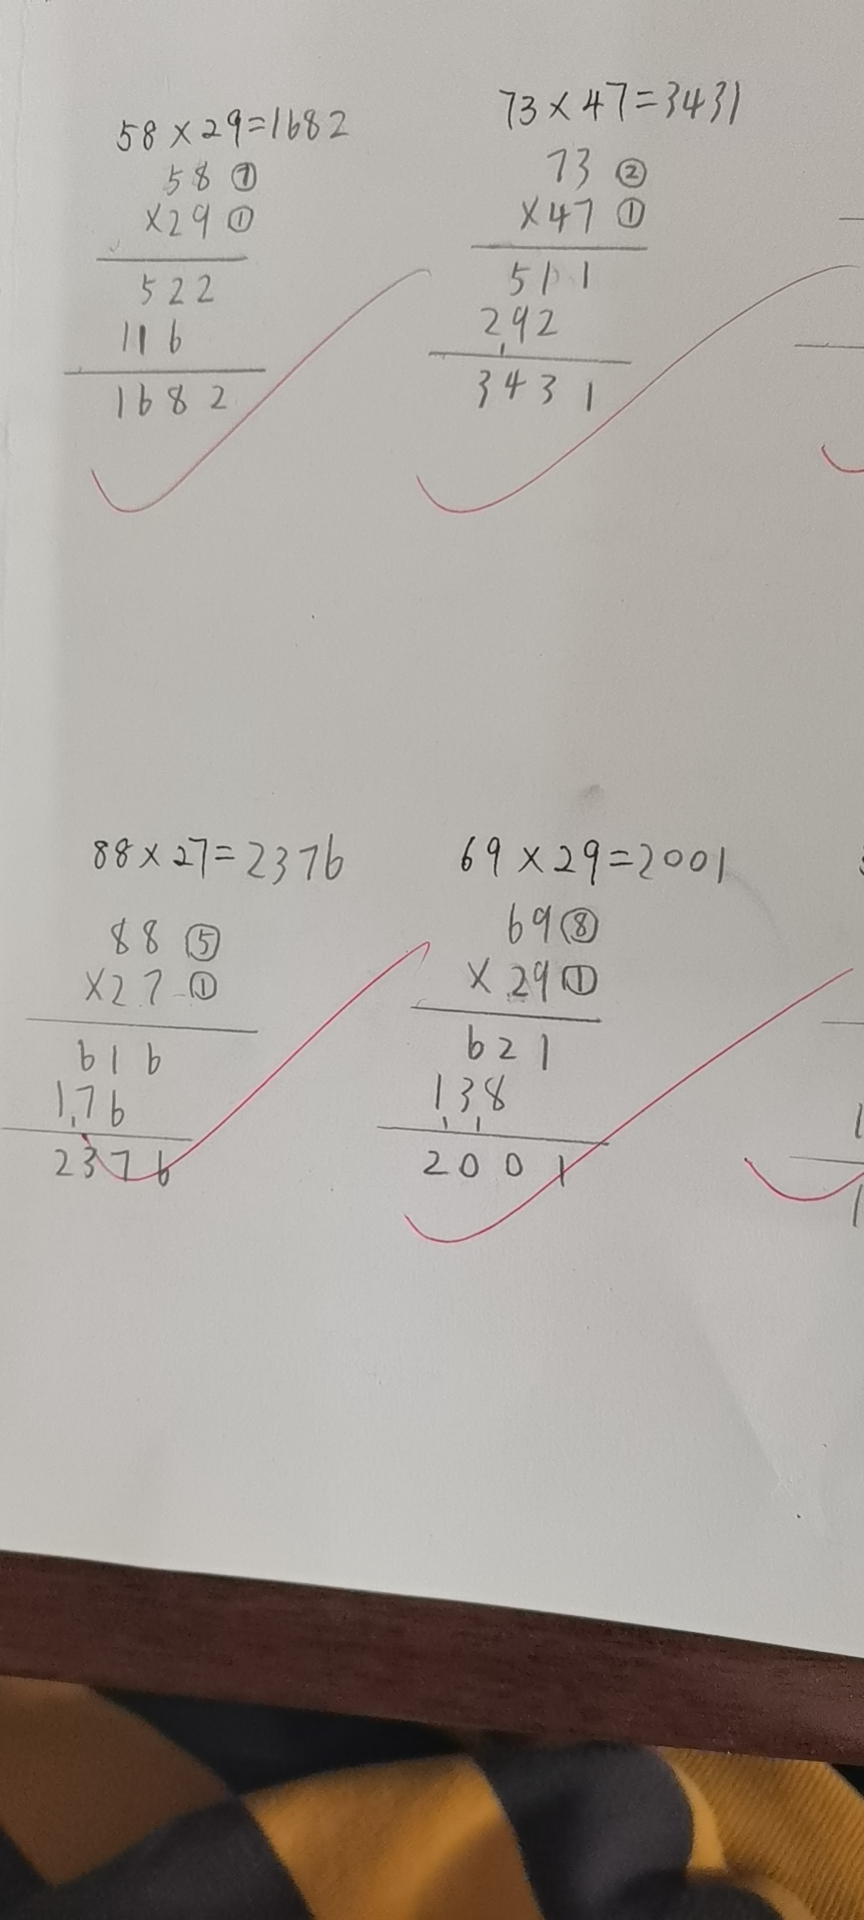 58×29=1682
58 ⑦
×29 ①
522
116
1682
73×47=3431
73 ②
×47 ①
511
292
3431
88×27=2376
88 ⑤
×27 ①
616
176
2376
69×29=2001
69 ⑧
×29 ①
621
138
2001